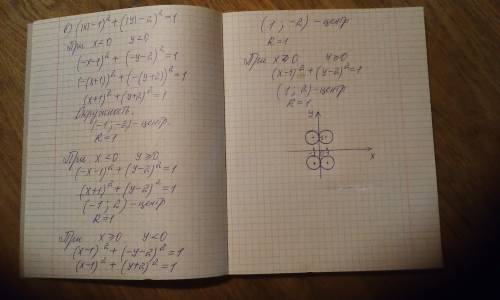 б) (|x|-1)² + (|y|-2)² = 1
При x<0 y<0
(-x-1)² + (-y-2)² = 1
(-(x+1))² + (-(y+2))² = 1
(x+1)² + (y+2)² = 1
Окружность.
(-1; -2) - центр.
R=1
При x<0 y≥0
(-x-1)² + (y-2)² = 1
(x+1)² + (y-2)² = 1
(-1; 2) - центр
R=1
При x≥0 y<0
(x-1)² + (-y-2)² = 1
(x-1)² + (y+2)² = 1
(1; -2) - центр
R=1
При x≥0 y≥0
(x-1)² + (y-2)² = 1
(1; 2) - центр
R=1
y
x